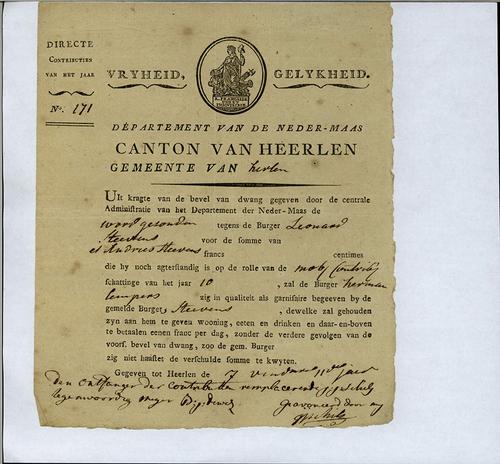 DIRECTE
CONTRIBUTIEN
VAN HET JAAR
No. 171
VRYHEID, GELYKHEID.
DÉPARTEMENT VAN DE NEDER-MAAS
CANTON VAN HEERLEN
GEMEENTE VAN herlen
UIt kragte van de bevel van dwang gegeven door de centrale
Administratie van het Departement der Neder-Maas de
word gesonden tegens de Burger Leonard
Steevens voor de somme van
et Andries Steevens francs centimes
die hy noch agterstandig is op de rolle van de mob. Contrib.
schattinge van het jaar 10 , zal de Burger herman
lempers zig in qualiteit als garnisaire begeeven by de
gemelde Burger Steevens , dewelke zal gehouden
zyn aan hem te geven wooning, eeten en drinken en daar-en-boven
te betaalen eenen franc per dag, zonder de verdere gevolgen van de
voorf. bevel van dwang, zoo de gem. Burger
zig niet haastet de verschulde somme te kwyten.
Gegeven tot Heerlen de 7 jaer
Den ontfanger der Contributien remplacerende
tegenwoordig
door my